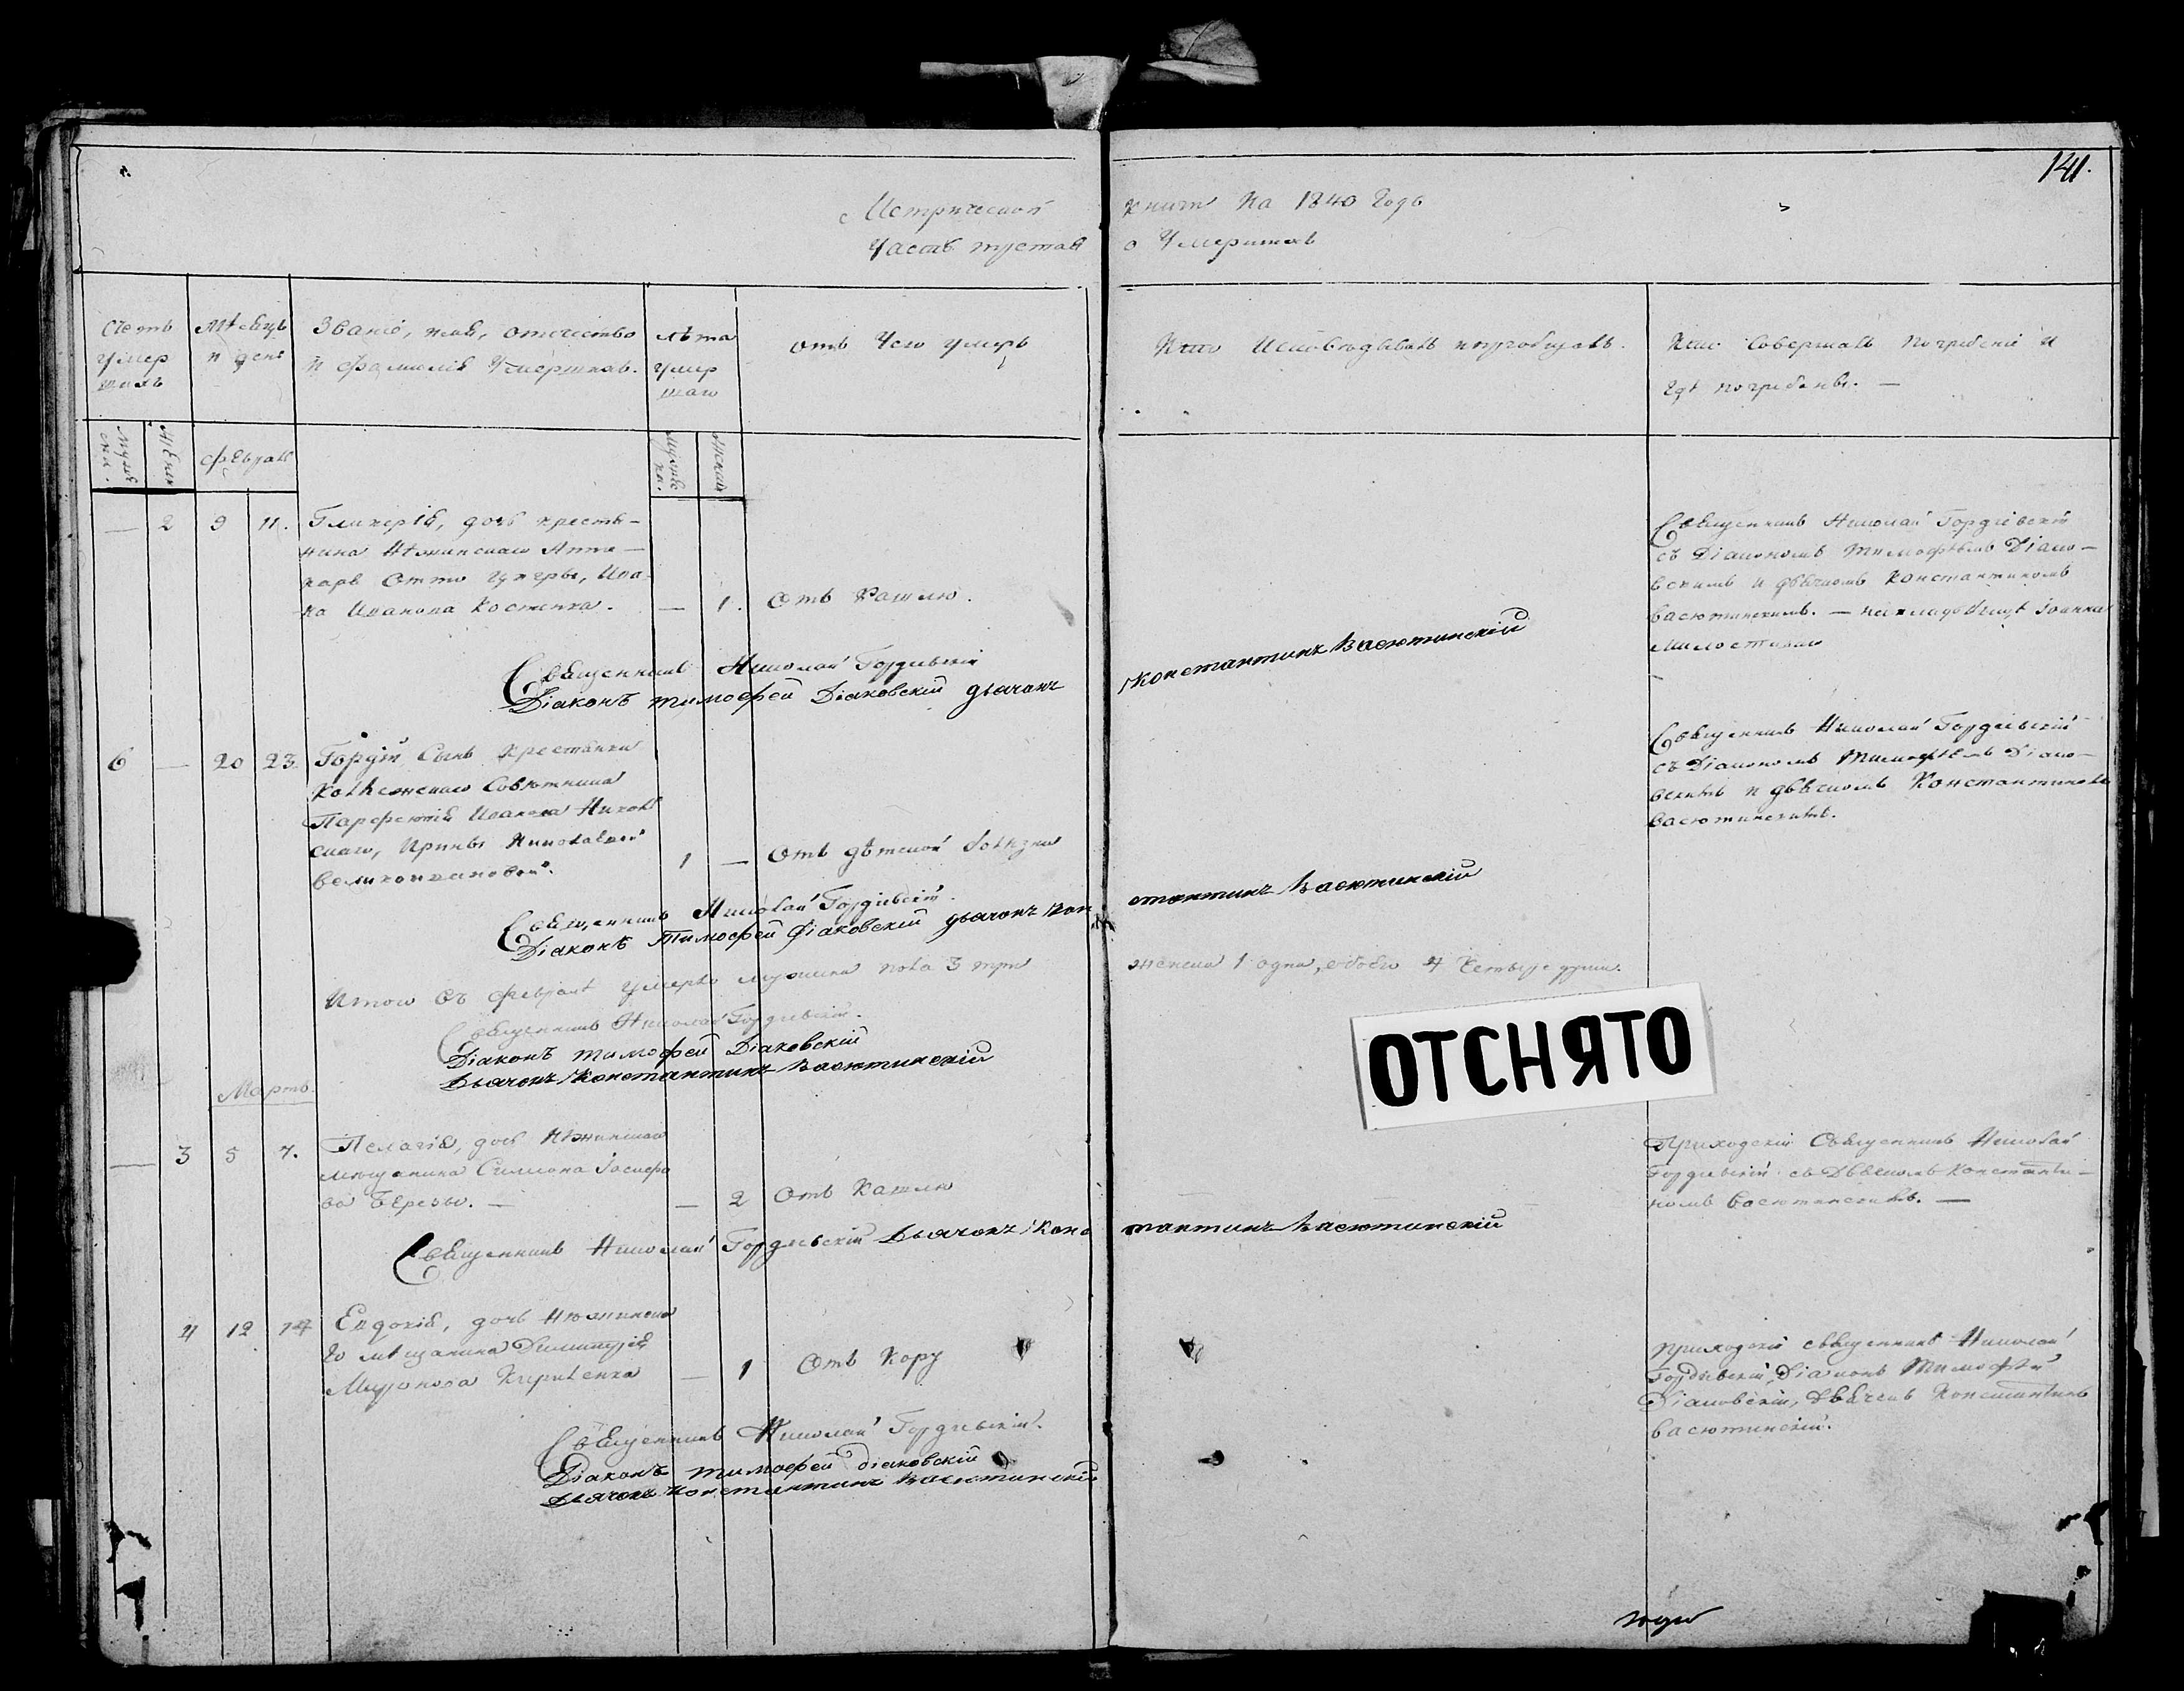 141.
Метрической книги на 1840 годъ
Часть третая о Умершихъ
Счетъ умершихъ
Мѣсяцъ и день
Званіе, имя, отечество и фамилія Умершихъ.
лѣта умершаго
отъ Чего умеръ
Кто Исповѣдывалъ
Кто Совершалъ Погребеніе и гдѣ погребены. —
— 2 9 11. Гликерія, дочь крестья-
нина Нѣжинскаго Апте-
каря Отто
Иванова Костенка. — 1. Отъ Кашлю.
Священникъ Николай Гордіевскій
съ Діакономъ Тимофѣемъ Діако-
вскимъ и дьячкомъ Константиномъ
Васютинскимъ. —
Священникъ Николай Гордіевскій
Діаконъ Тимофей Діаковскій дьячокъ Константинъ Васютинскій
6 — 20 23. Сынъ крестьянки
Совѣтника
Парфентія Иванова
Ирины Николаевой
1 — Отъ дѣтской болѣзни
Священникъ Николай Гордіевскій
съ Діакономъ Тимофѣемъ Діако-
вскимъ и дьячкомъ Константиномъ
Васютинскимъ.
Священникъ Николай Гордіевскій.
Діаконъ Тимофей Діаковскій дьячокъ Константинъ Васютинскій
Итого въ февралѣ умерло мужеска пола 3 три женска 1 одна, обоего 4 Четыре души.
Священникъ Николай Гордіевскій.
Діаконъ Тимофей Діаковскій
Дьячокъ Константинъ Васютинскій
ОТСНЯТО
Мартъ.
— 3 5 7. Пелагія, дочь Нѣжинскаго
мещанина Симиона Іосифо
ва Березы. — — 2 Отъ Кашлю
Приходскій Священникъ Николай
Гордіевскій съ Дьячкомъ Константи-
номъ Васютинскимъ. —
Священникъ Николай Гордіевскій Дьячокъ Константинъ Васютинскій
4 12 14 Евдокія, дочь Нѣжинска
го мѣщанина Димитрія
Миронова Кириленка — 1 Отъ Кору
приходскій священникъ Николай
Гордіевскій, Діаконъ Тимофѣй
Діаковскій, Дьячекъ Константинъ
Васютинскій.
Священникъ Николай Гордіевскій.
Діаконъ Тимофей Діаковскій
Дьячокъ Константинъ Васютинскій